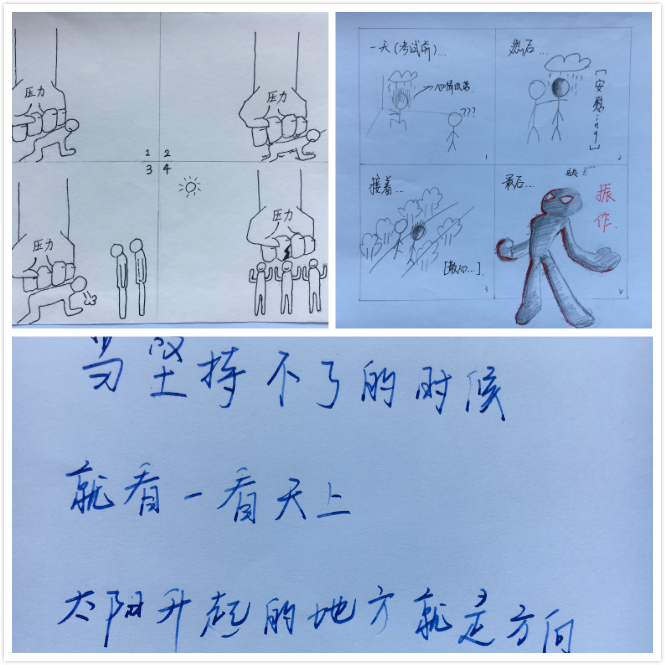 压力
压力
1 2
3 4
压力
压力
一天(考试前)...
???
1
然后...
[安慰ing]
2
接着...
[散心...]
最后...
振作.
当坚持不了的时候
就看一看天上
太阳升起的地方就是方向